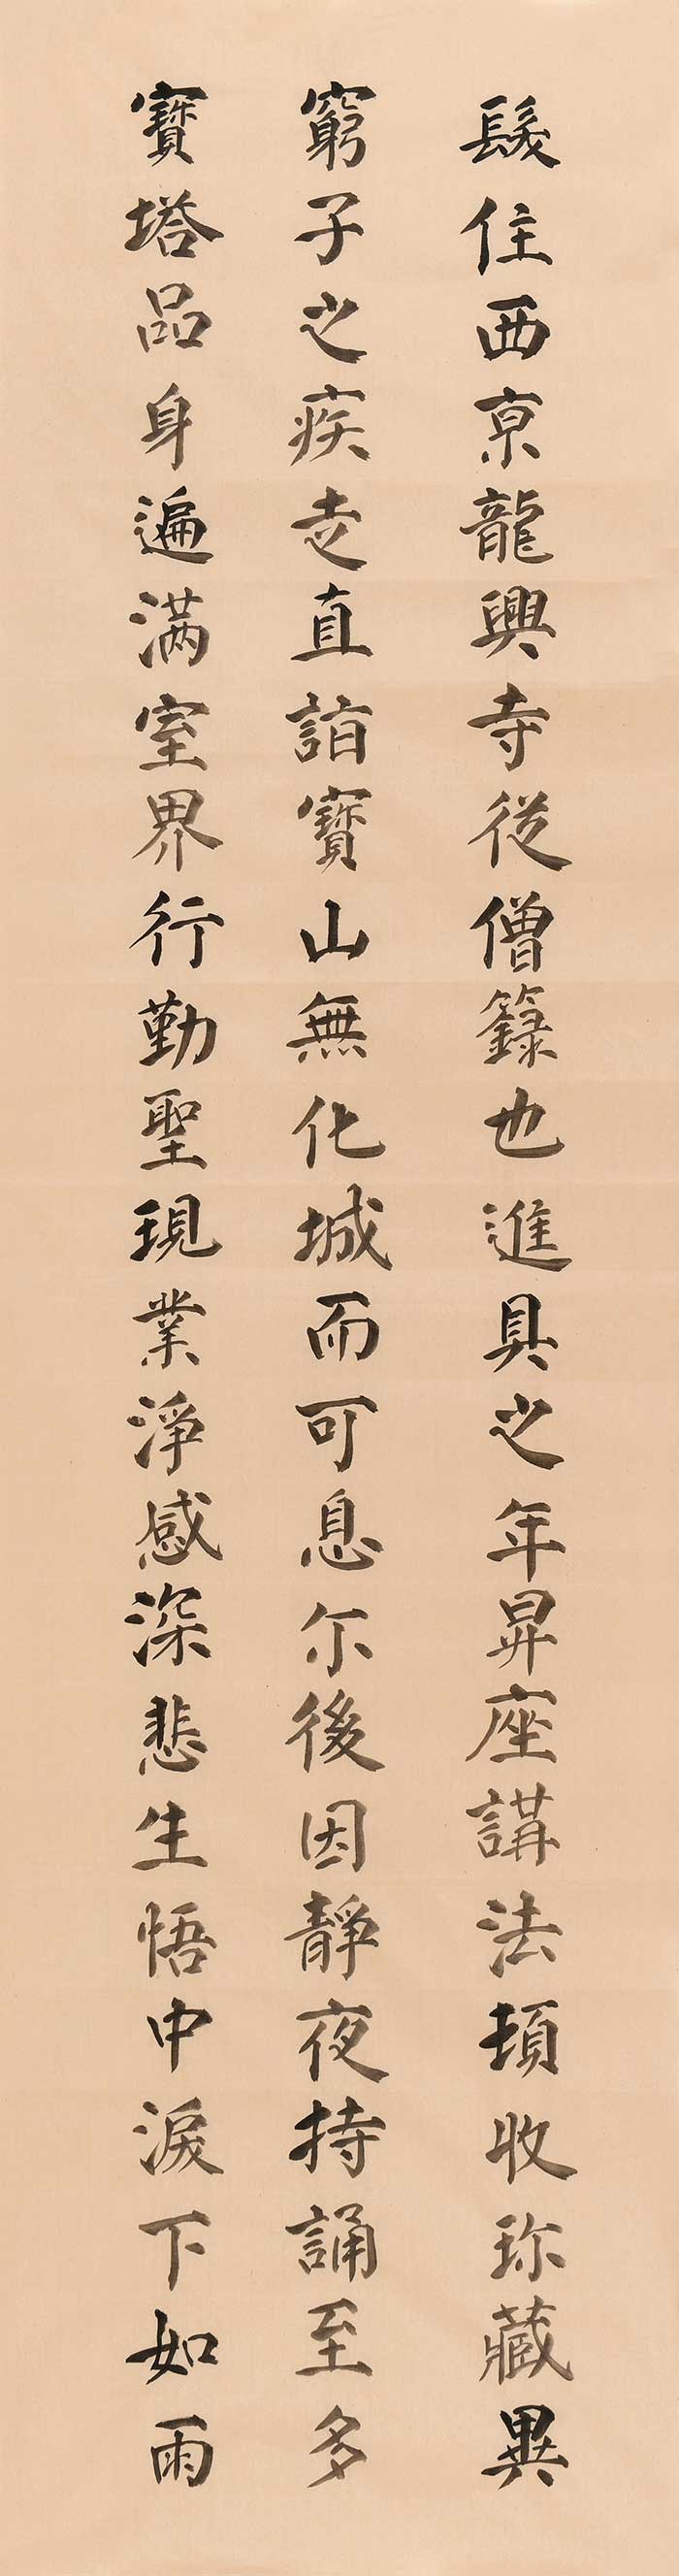 髮住西京龍興寺從僧籙也進具之年昇座講法頓收珎藏異
窮子之疾走直詣寶山無化城而可息尔後因靜夜持誦至多
寶塔品身遍满室界行勤聖現業淨感深悲生悟中淚下如雨